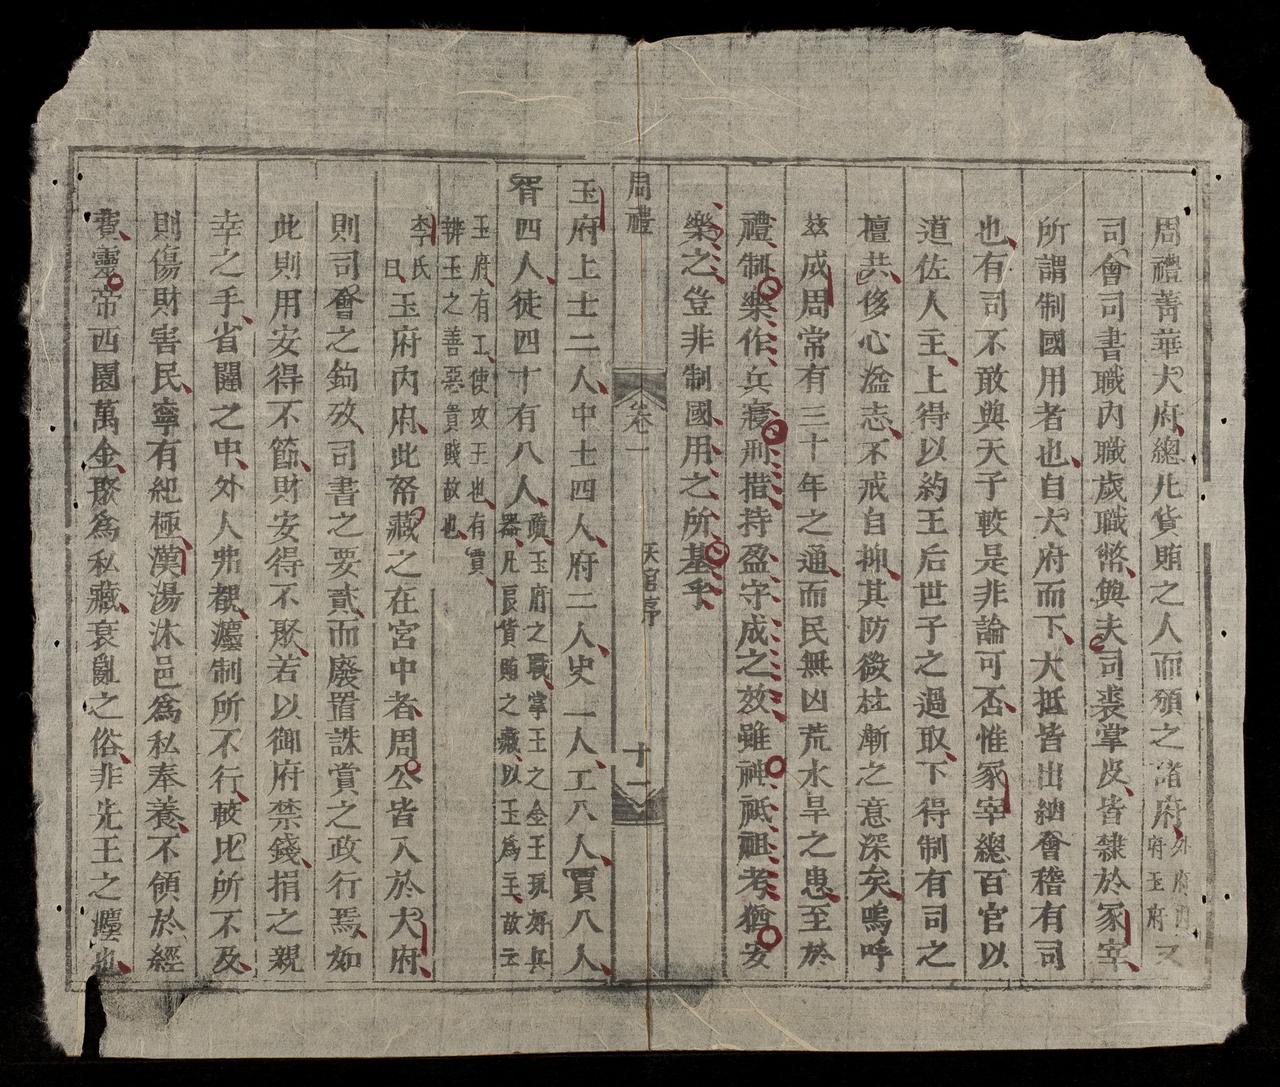 周禮菁華大府總凡貨賄之人而頒之諸府外府內府玉府又
司會司書職內職歲職幣與夫司裘掌皮皆隸於冢宰
所謂制國用者也自大府而下大抵皆出納會稽有司
也有司不敢與天子較是非論可否惟冢宰總百官以
道佐人主上得以約王后世子之過取下得制有司之
檀共侈心溢志不戒自抑其防微杜漸之意深矣嗚呼
茲成周常有三十年之通而民無凶荒水旱之患至於
禮制樂作兵寢刑措持盈守成之效雖神祇祖考猶安
樂之豈非制國用之所基乎
周禮 卷一 天官序 十二
玉府上士二人中士四人府二人史一人工八人賈八人
胥四人徒四十有八人
疏玉府之職掌王之金玉玩好兵
器凡良貨賄之藏以玉為主故云
玉府有工使攻玉也有賈
辨玉之善惡貴賤故也
李氏曰玉府內府此帑藏之在宮中者周公皆入於大府
則司會之鉤攷司書之要貳而廢置誅賞之政行焉如
此則用安得不節財安得不聚若以御府禁錢捐之親
幸之手省闥之中外人弗覩灋制所不行較比所不及
則傷財害民寧有紀極漢湯沐邑為私奉養不領於經
費靈帝西園萬金聚為私藏衰亂之俗非先王之灋也